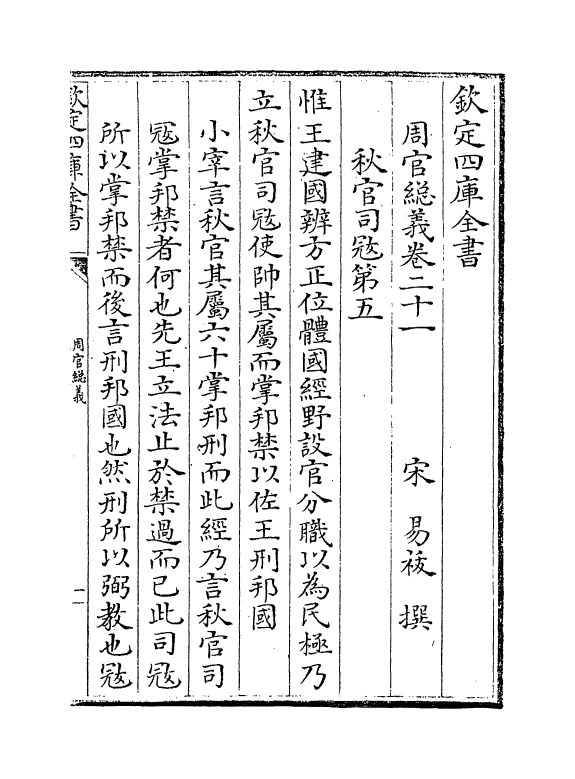 欽定四庫全書
周官總義卷二十一　宋　易祓　撰
秋官司寇第五
惟王建國辨方正位體國經野設官分職以為民極乃
立秋官司寇使帥其屬而掌邦禁以佐王刑邦國
小宰言秋官其屬六十掌邦刑而此經乃言秋官司
寇掌邦禁者何也先王立法止於禁過而已此司寇
所以掌邦禁而後言刑邦國也然刑所以弼教也寇
欽定四庫全書
周官總義
一